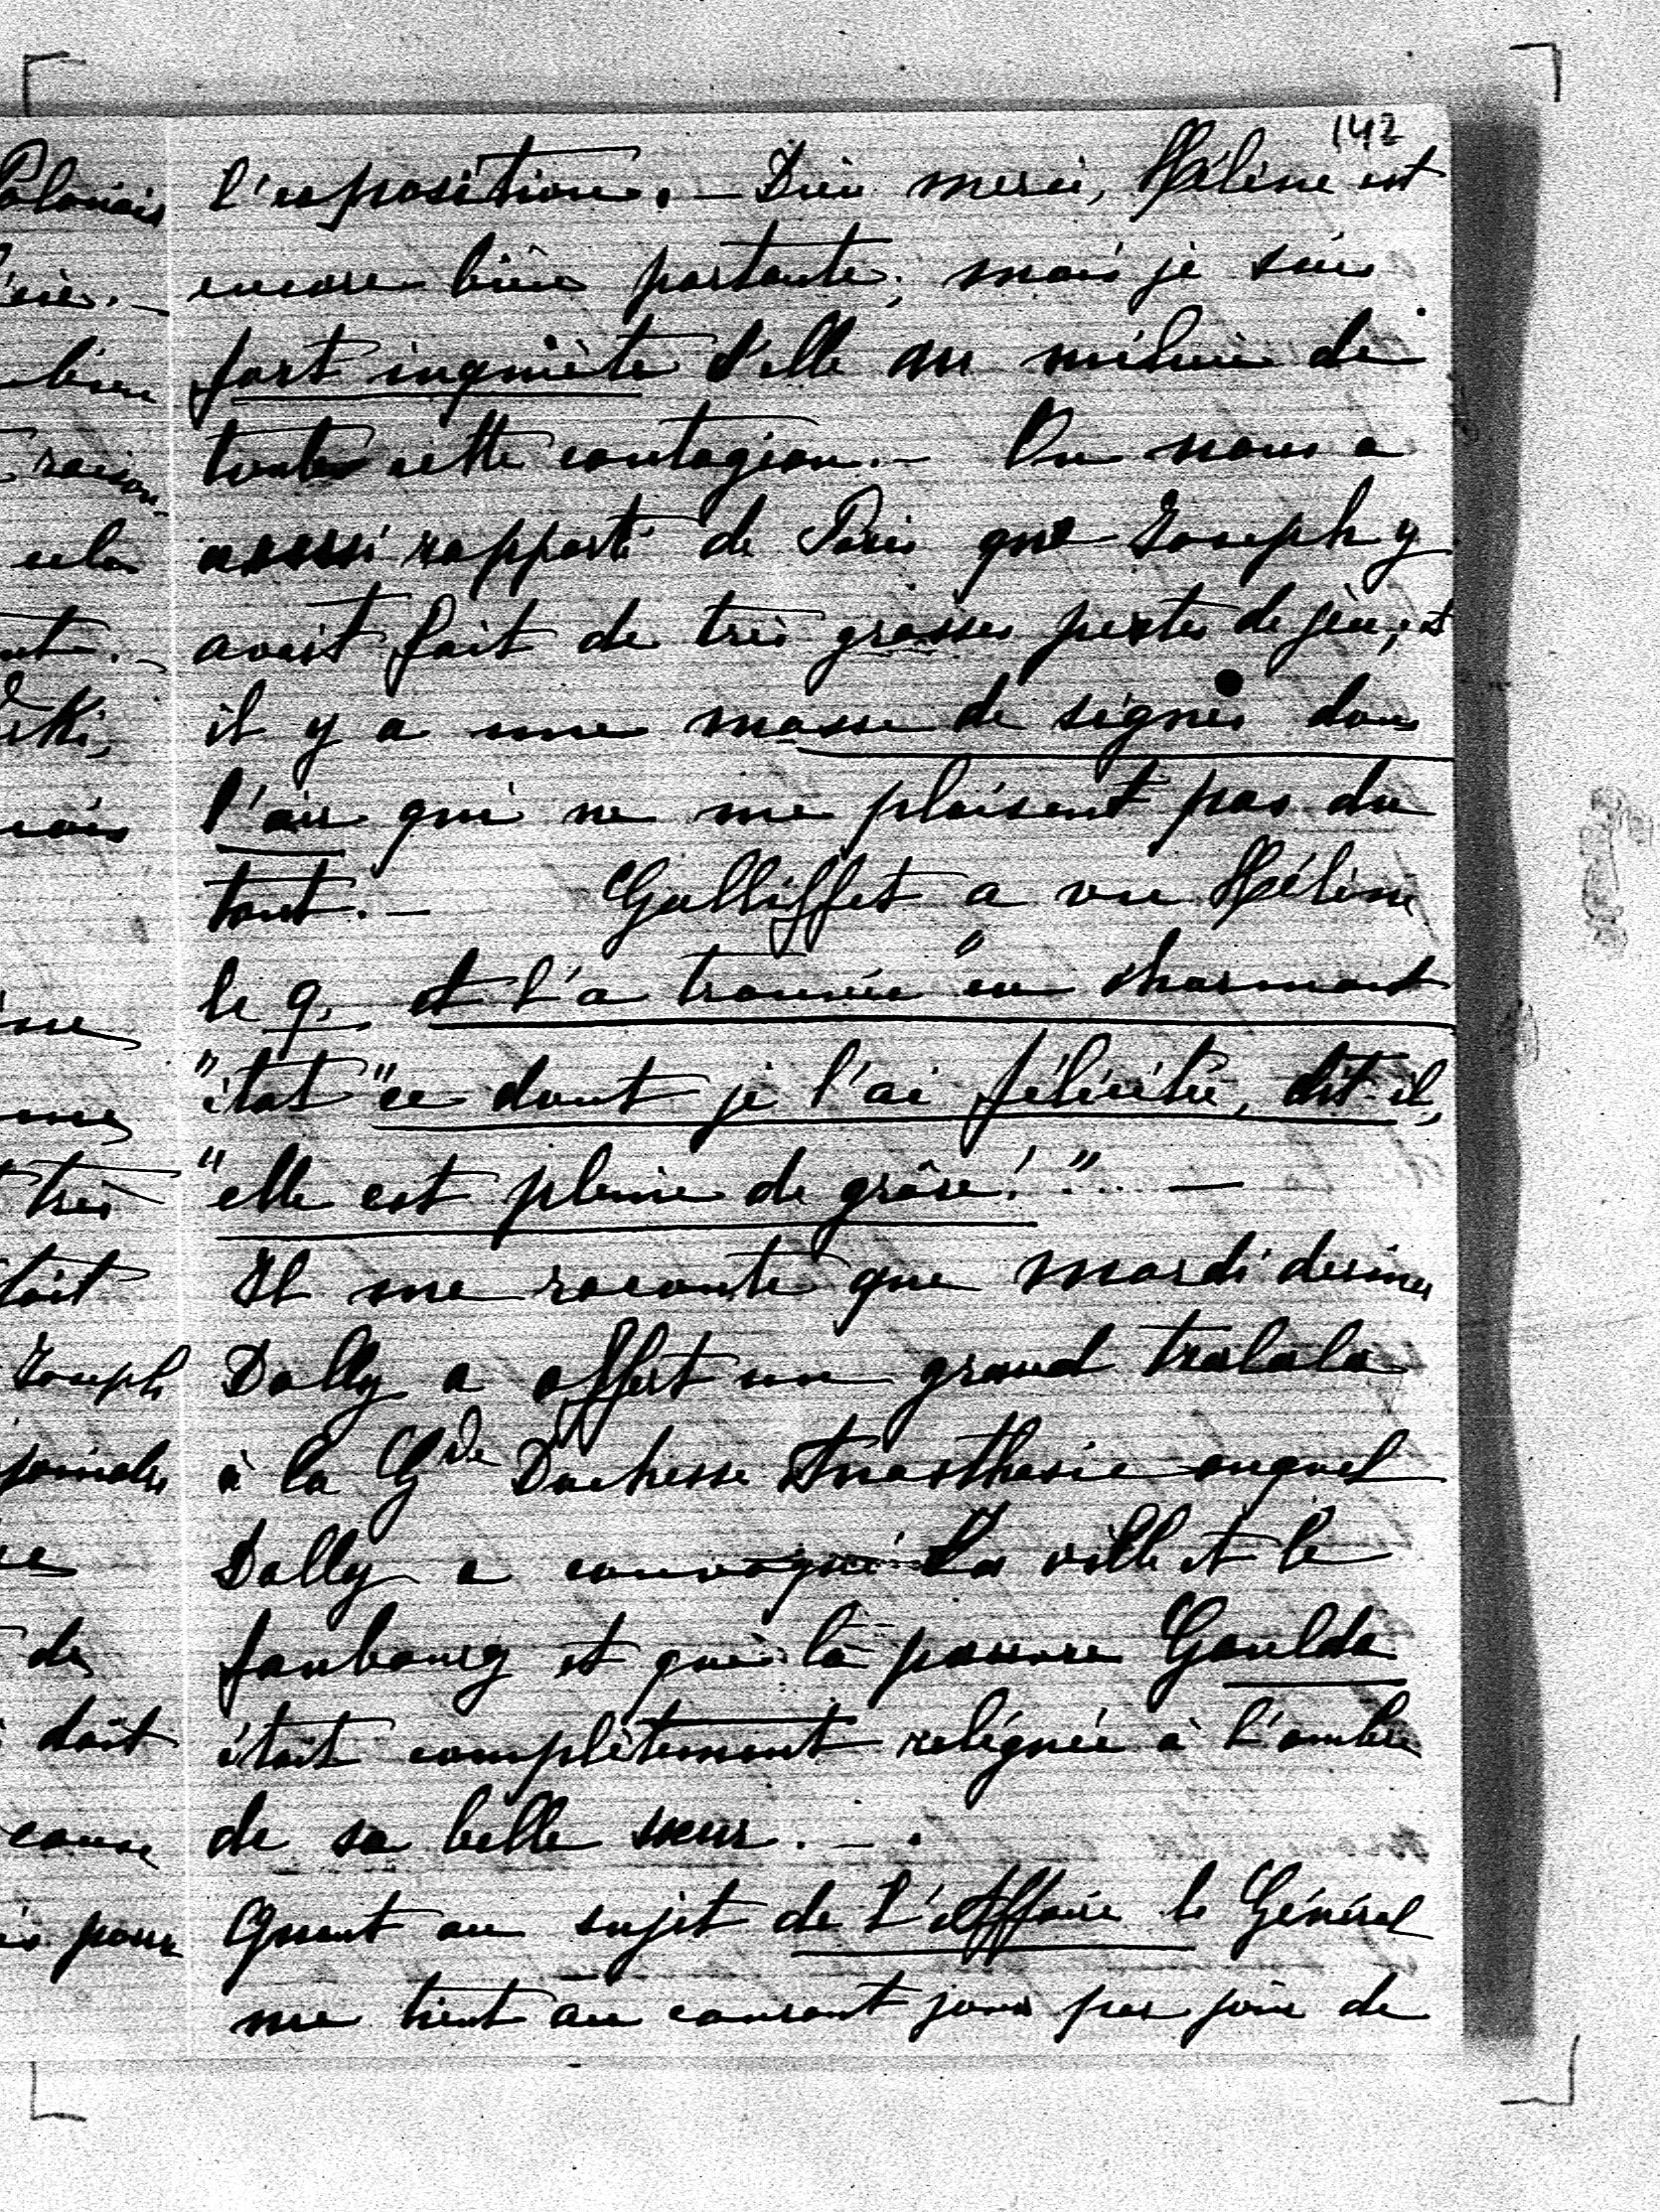 142
Polonais l'exposition. — Dieu merci, Hélène est
encore bien portante; mais je suis
fort inquiète d'elle au milieu de
raison toute cette contagion. — On nous a
cela aussi rapporté de Paris que Joseph y
avait fait de très grosses pertes de jeu, et
il y a une masse de signes dans
l'air qui ne me plaisent pas du
tout. — Galliffet a vu Hélène
le 9, et l'a trouvée "en charmant
"état" "ce dont je l'ai félicitée, dit-il,
très "elle est pleine de grâce!" —
Il me raconte que mardi dernier
Joseph Dolly a offert un grand tralala
à la Gde Duchesse Anasthasie auquel
Dolly a convoqué la ville et le
de faubourg et que la pauvre Goulda
doit était complètement reléguée à l'ombre
cause de sa belle sœur. — .
pour Quant au sujet de l'Affaire le Général
me tient au courant jour par jour de